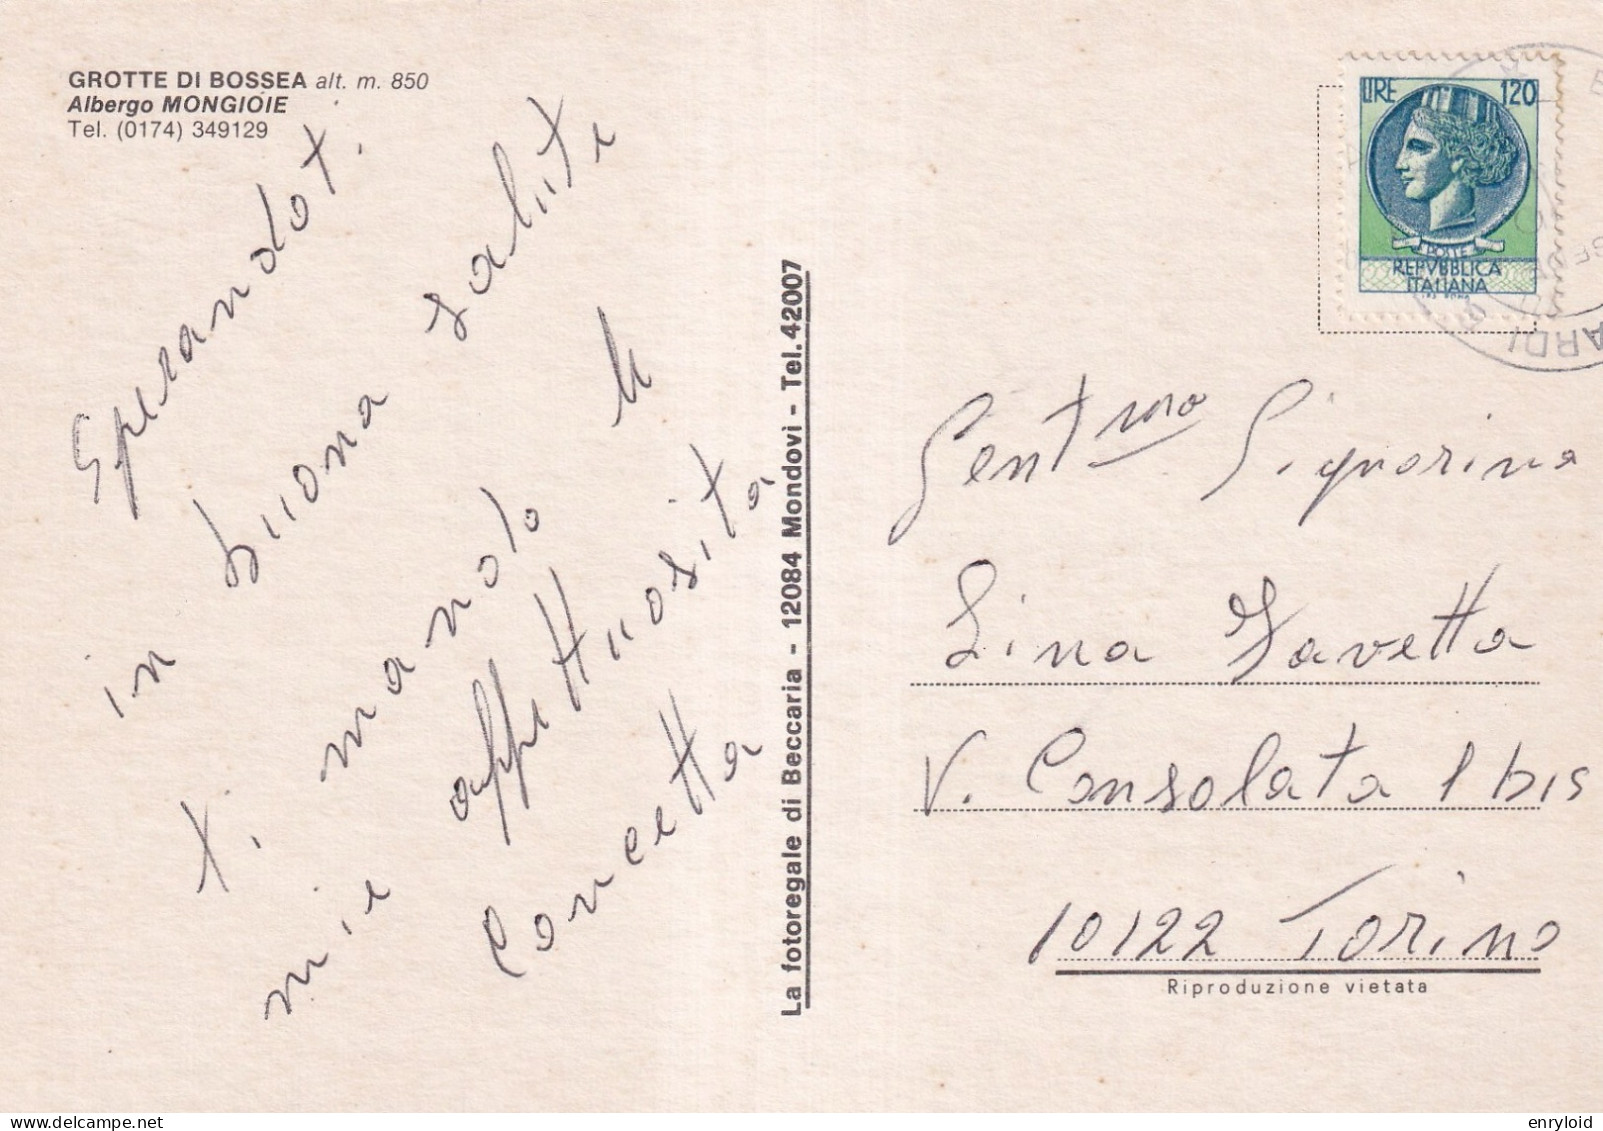 GROTTE DI BOSSEA alt. m. 850
Albergo MONGIOIE
Tel. (0174) 349129
Sperandot.
in buona salute
t. mando le
mie affettuosità
Concetta
La fotoregale di Beccaria - 12084 Mondovi - Tel. 42007
LIRE 120
POSTE
REPVBBLICA
ITALIANA
Gent mo Signorina
Lina Favetta
V. Consolata 1 bis
10122 Torino
Riproduzione vietata
enryloid